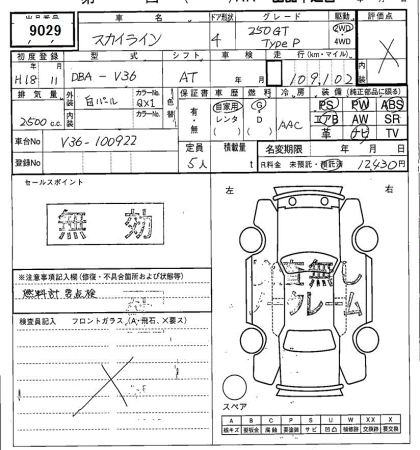 出品番号 車名 ドア形状 グレード 駆動 評価点
9029 スカイライン 4 250GT Type P 2WD 4WD X
初度登録 型式 シフト 車検 走行(km・マイル)
H18年 11月 DBA-V36 AT 年 月 109,102
排気量 外装 色 カラーNo. 色替 保証書 車歴 燃料 冷房 装備(純正部品に限る)
2500 c.c. 白パール QX1 有・無 自家用 レンタ ( ) G・D ( ) AAC PS PW ABS
内装 カラーNo. エアB AW SR
革 ナビ TV
車台No V36-100922 定員 積載量 名変期限 年 月 日
登録No 5人 t R料金 未預託・預託済 12,430円
セールスポイント 左 右
無効
※注意事項記入欄(修復・不具合箇所および状態等)
燃料計 要点検
検査員記入 フロントガラス(A・飛石、X要ス)
保証無し
ノークレーム
スペア
A B C P S U W XX X
線キズ 要板金 腐蝕 要塗装 サビ 凹凸 補修跡 交換跡 要交換